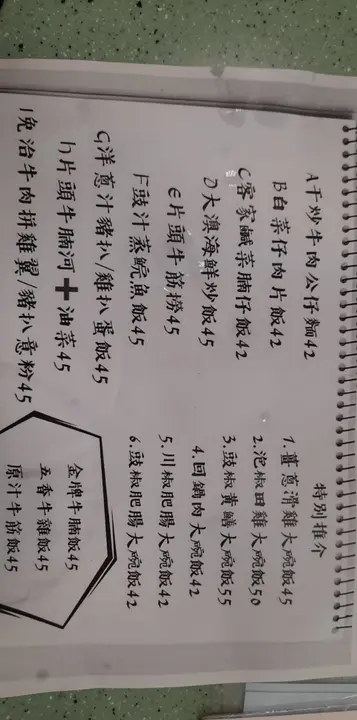 A干炒牛肉公仔麵42
B白菜仔肉片飯42
C客家鹹菜腩仔飯42
D大澳海鮮炒飯45
e片頭牛筋撈45
F豉汁蒸鯇魚飯45
G洋蔥汁豬扒/雞扒蛋飯45
h片頭牛腩河+油菜45
I免治牛肉拼雞翼/豬扒意粉45
特別推介
1.薑蔥滑雞大碗飯45
2.泡椒田雞大碗飯50
3.豉椒黃鱔大碗飯55
4.回鍋肉大碗飯42
5.川椒肥腸大碗飯42
6.豉椒肥腸大碗飯42
金牌牛腩飯45
五香牛雜飯45
原汁牛筋飯45